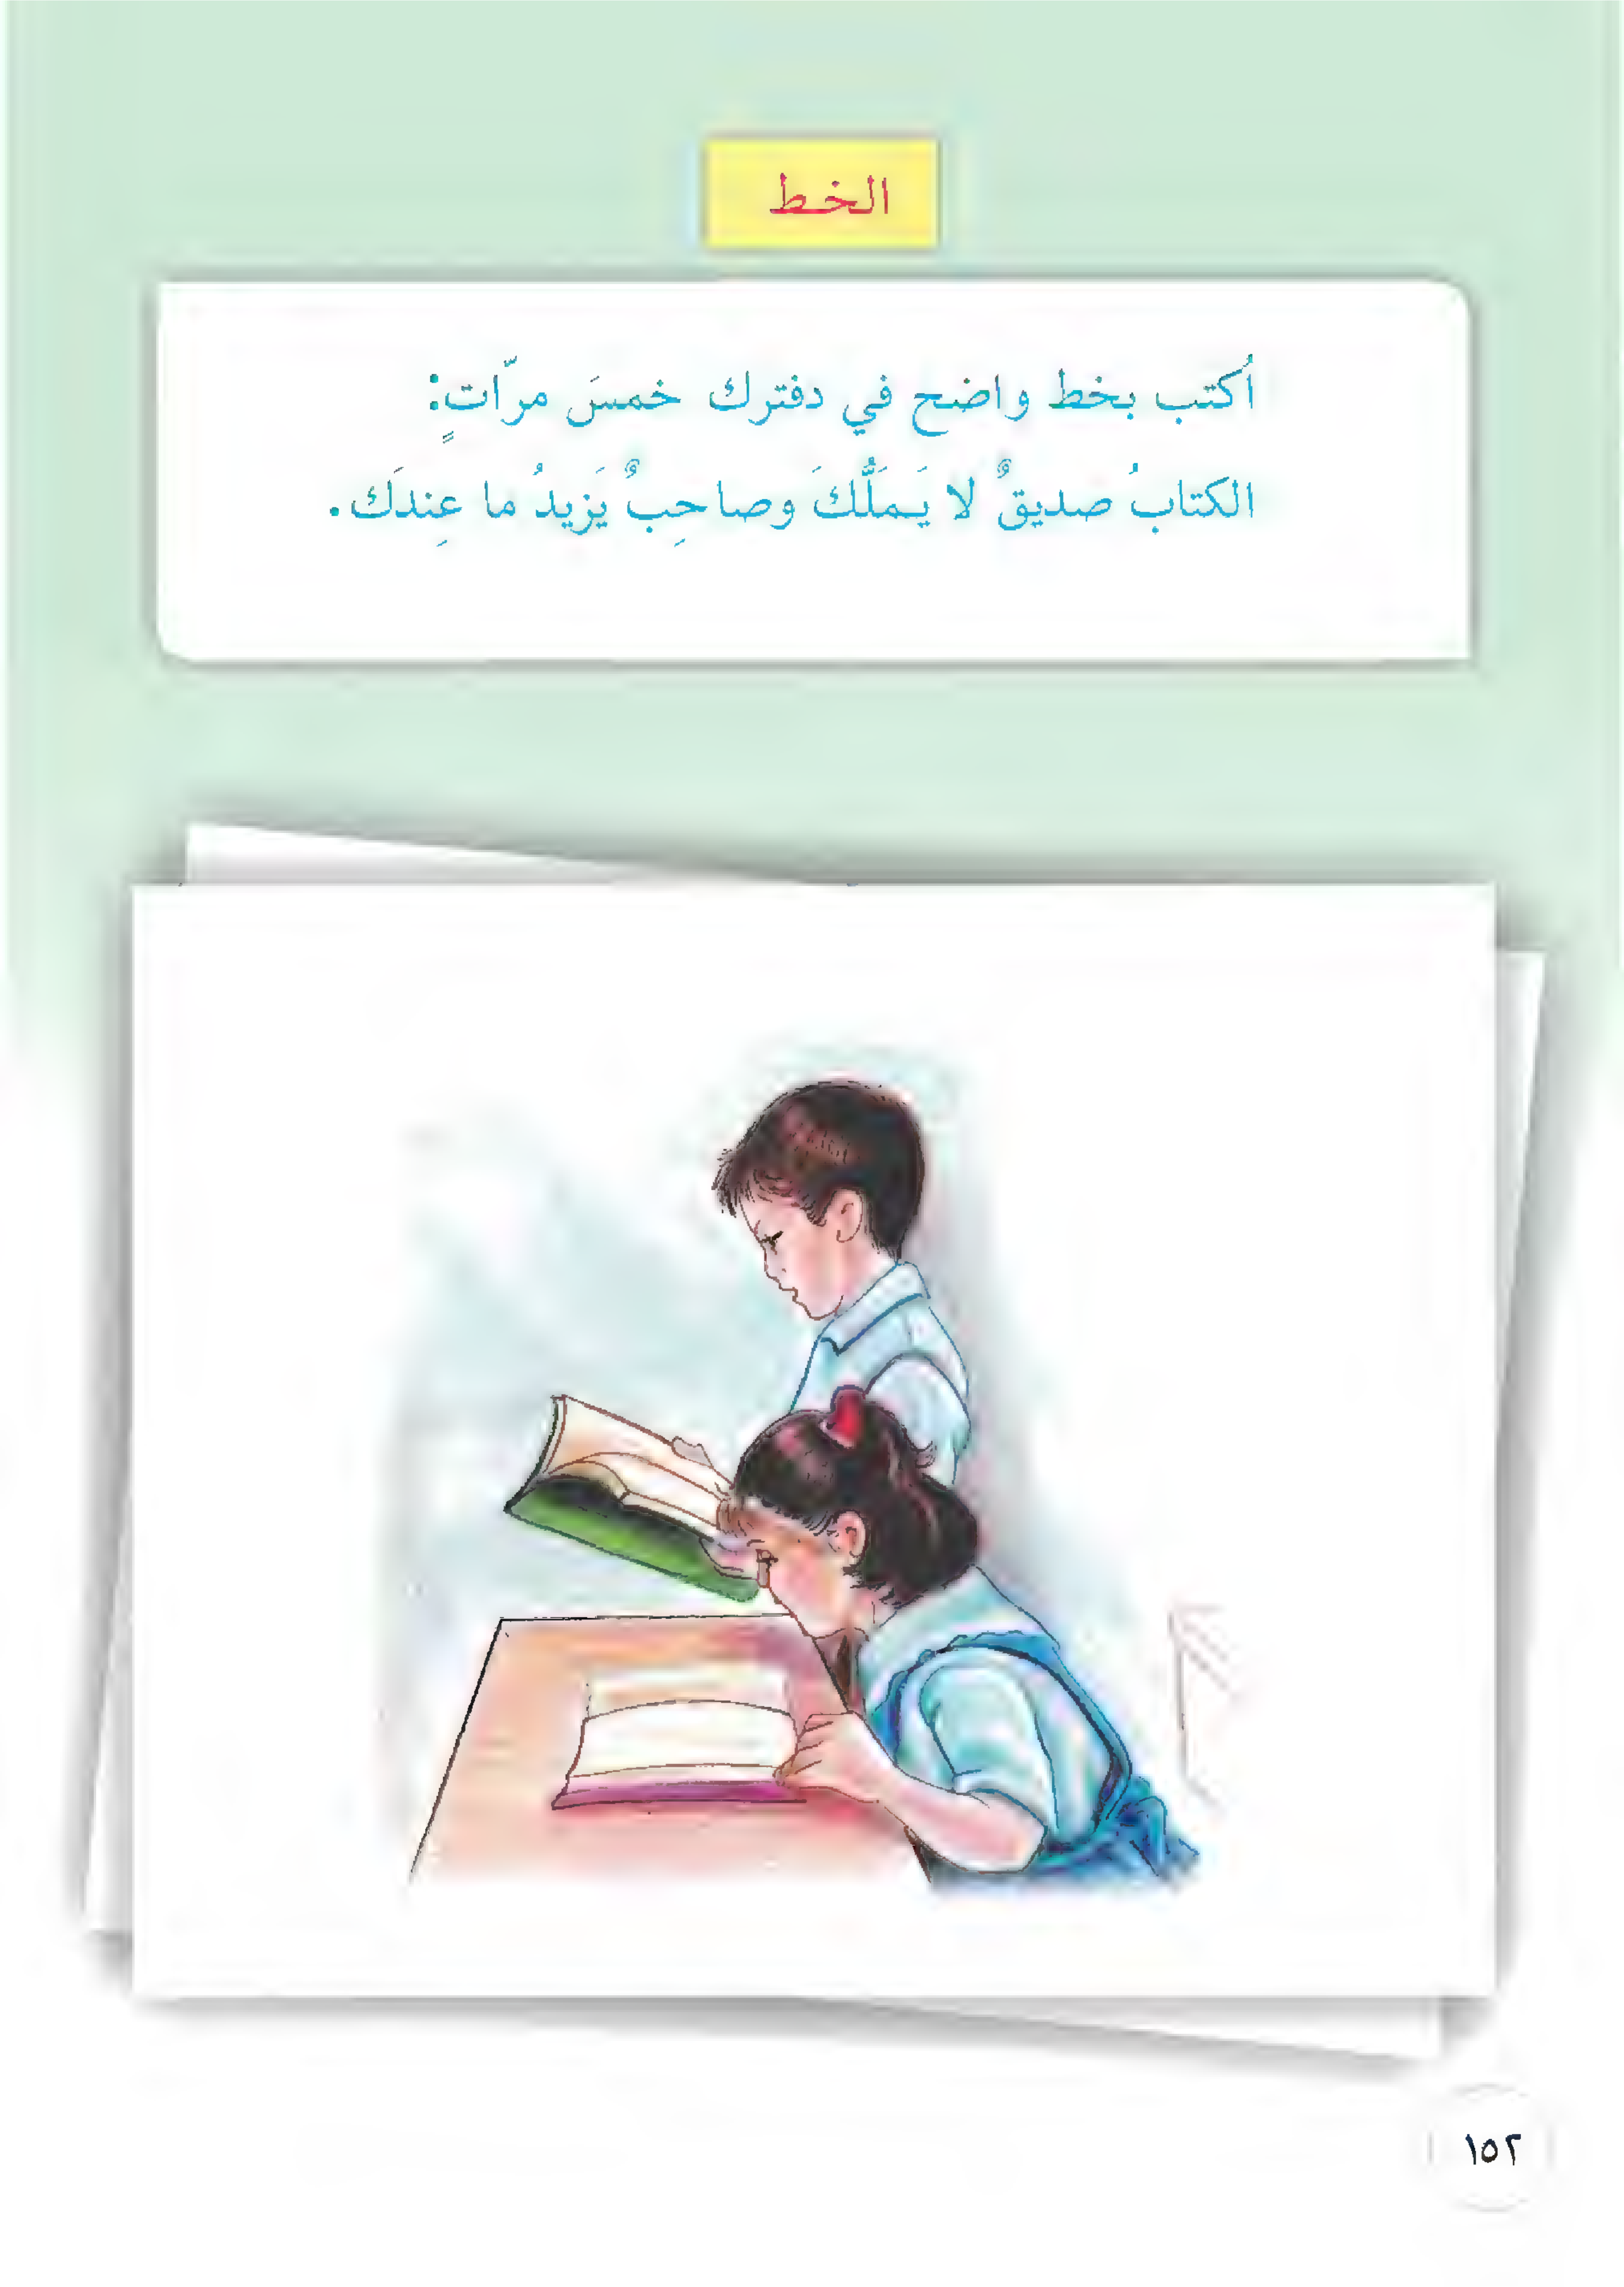 الخط
اُكتب بخط واضح في دفترك خمسَ مرّاتٍ:
الكتابُ صديقٌ لا يَملُّكَ وصاحِبٌ يَزيدُ ما عِندَك.
١٥٢